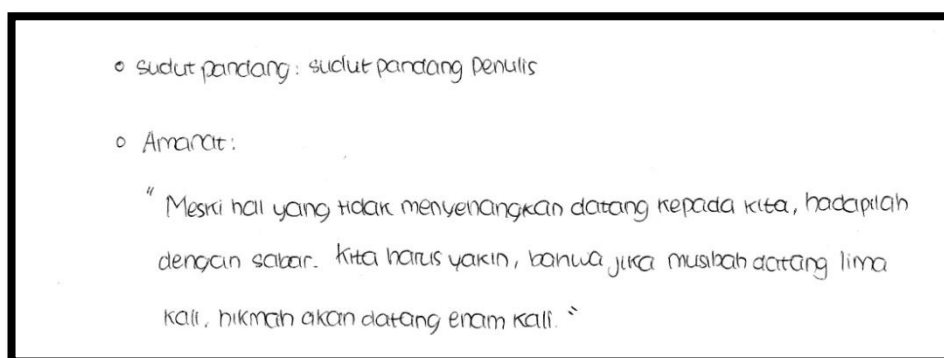 o sudut pandang : sudut pandang penulis
o Amanat :
" Meski hal yang tidak menyenangkan datang kepada kita, hadapilah
dengan sabar. Kita harus yakin, bahwa jika musibah datang lima
kali, hikmah akan datang enam kali. "